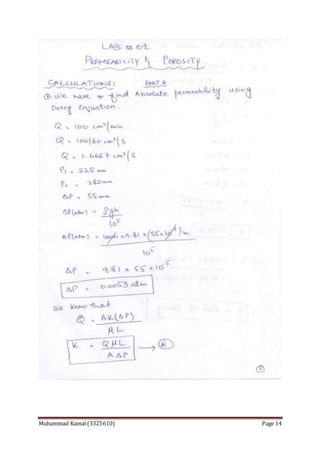 LAB # 01
PERMEABILITY & POROSITY
CALCULATIONS: PART A
We have to find Absolute permeability using
Darcy Equation.
Q = 100 cm³/min
Q = 100/60 cm³/s
Q = 1.6667 cm³/s
P₁ = 225 mm
P₂ = 280 mm
ΔP = 55 mm
ΔP(atm) = ρgh
10⁵
ΔP(atm) = 1000 × 9.81 × (55×10⁻³)m
10⁵
ΔP = 9.81 × 55 × 10⁻⁵
ΔP = 0.0053 atm
We know that
Q = AK(ΔP)
μL
K = QμL → A
AΔP
Muhammad Kamal (3325610) Page 14